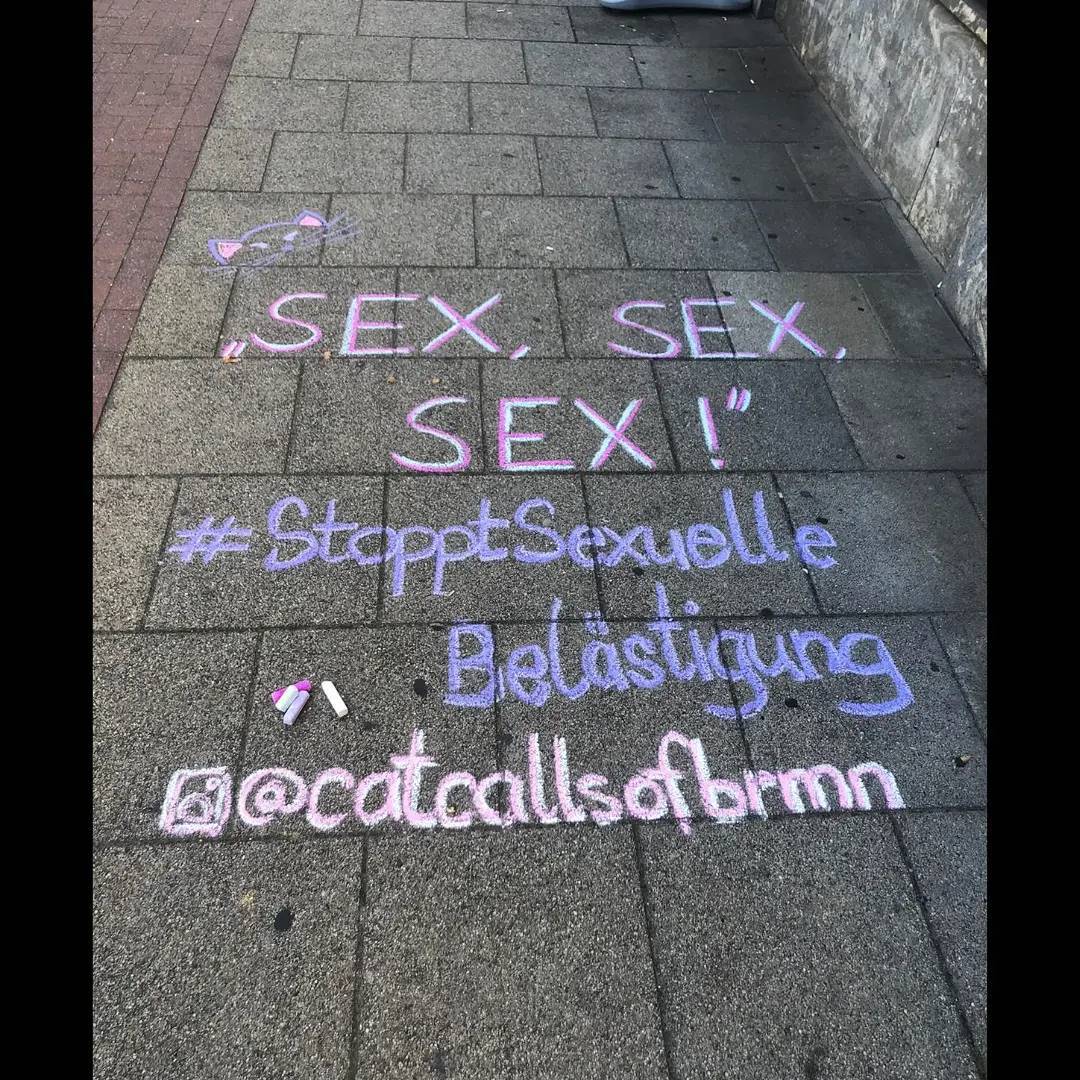 „SEX, SEX,
SEX!”
#StopptSexuelle
Belästigung
@catcallsofbrmn